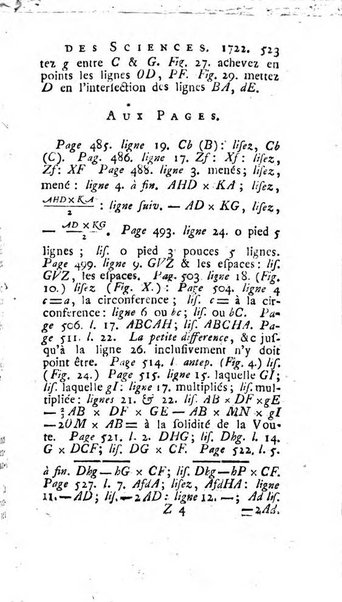 DES SCIENCES. 1722. 523
tez g entre C & G. Fig. 27. achevez en
points les lignes OD, PF. Fig. 29. mettez
D en l'interſection des lignes BA, dE.
AUX PAGES.
Page 485. ligne 19. Cb (B): liſez, Cb
(C). Pag. 486. ligne 17. Zf: Xf: liſez,
Zf: XF Page 488. ligne 3. menés; liſez,
mené: ligne 4. à fin. AHD × KA; liſez,
AHD × KA / 2 : ligne ſuiv. — AD × KG, liſez,
— AD × KG / 2. Page 493. ligne 24. 0 pied 5
lignes; liſ. 0 pied 3 pouces 5 lignes.
Page 499. ligne 9. GVZ & les eſpaces: liſ.
GVZ, les eſpaces. Pag. 503. ligne 18. (Fig.
10.) liſez (Fig. X.): Page 504. ligne 4
c=a, la circonference; liſ. c à la cir-
conference: ligne 6 ou bc; liſ. ou bC. Pag.
pag. 506. l. 17. ABCAH; liſ. ABCHA. Pag.
pag. 511. l. 22. La petite difference, &c juſ-
qu'à la ligne 26. incluſivement n'y doit
point être. Page 514. l. antep. (Fig. 4.) liſ.
(Fig. 24.) Page 515. ligne 15. laquelle GI;
liſ. laquelle gI: ligne 17. multipliés; liſ. mul-
tipliée: lignes 21. & 22. liſ. AB × DF × gE
— ⅔ AB × DF × GE — AB × MN × gI
— 2OM × AB = à la ſolidité de la Vou-
te. Page 521. l. 2. DHG; liſ. Dhg. l. 14.
G × DCF; liſ. G × CF: ligne 7.
à fin. Dhg—hG × CF; liſ. Dhg—hP × CF.
Page 527. l. 7. AfdA; liſez, AfdHA: ligne
11. — AD; liſ. — 2AD: ligne 12. —; Ad liſ.
Z 4 = 2Ad.